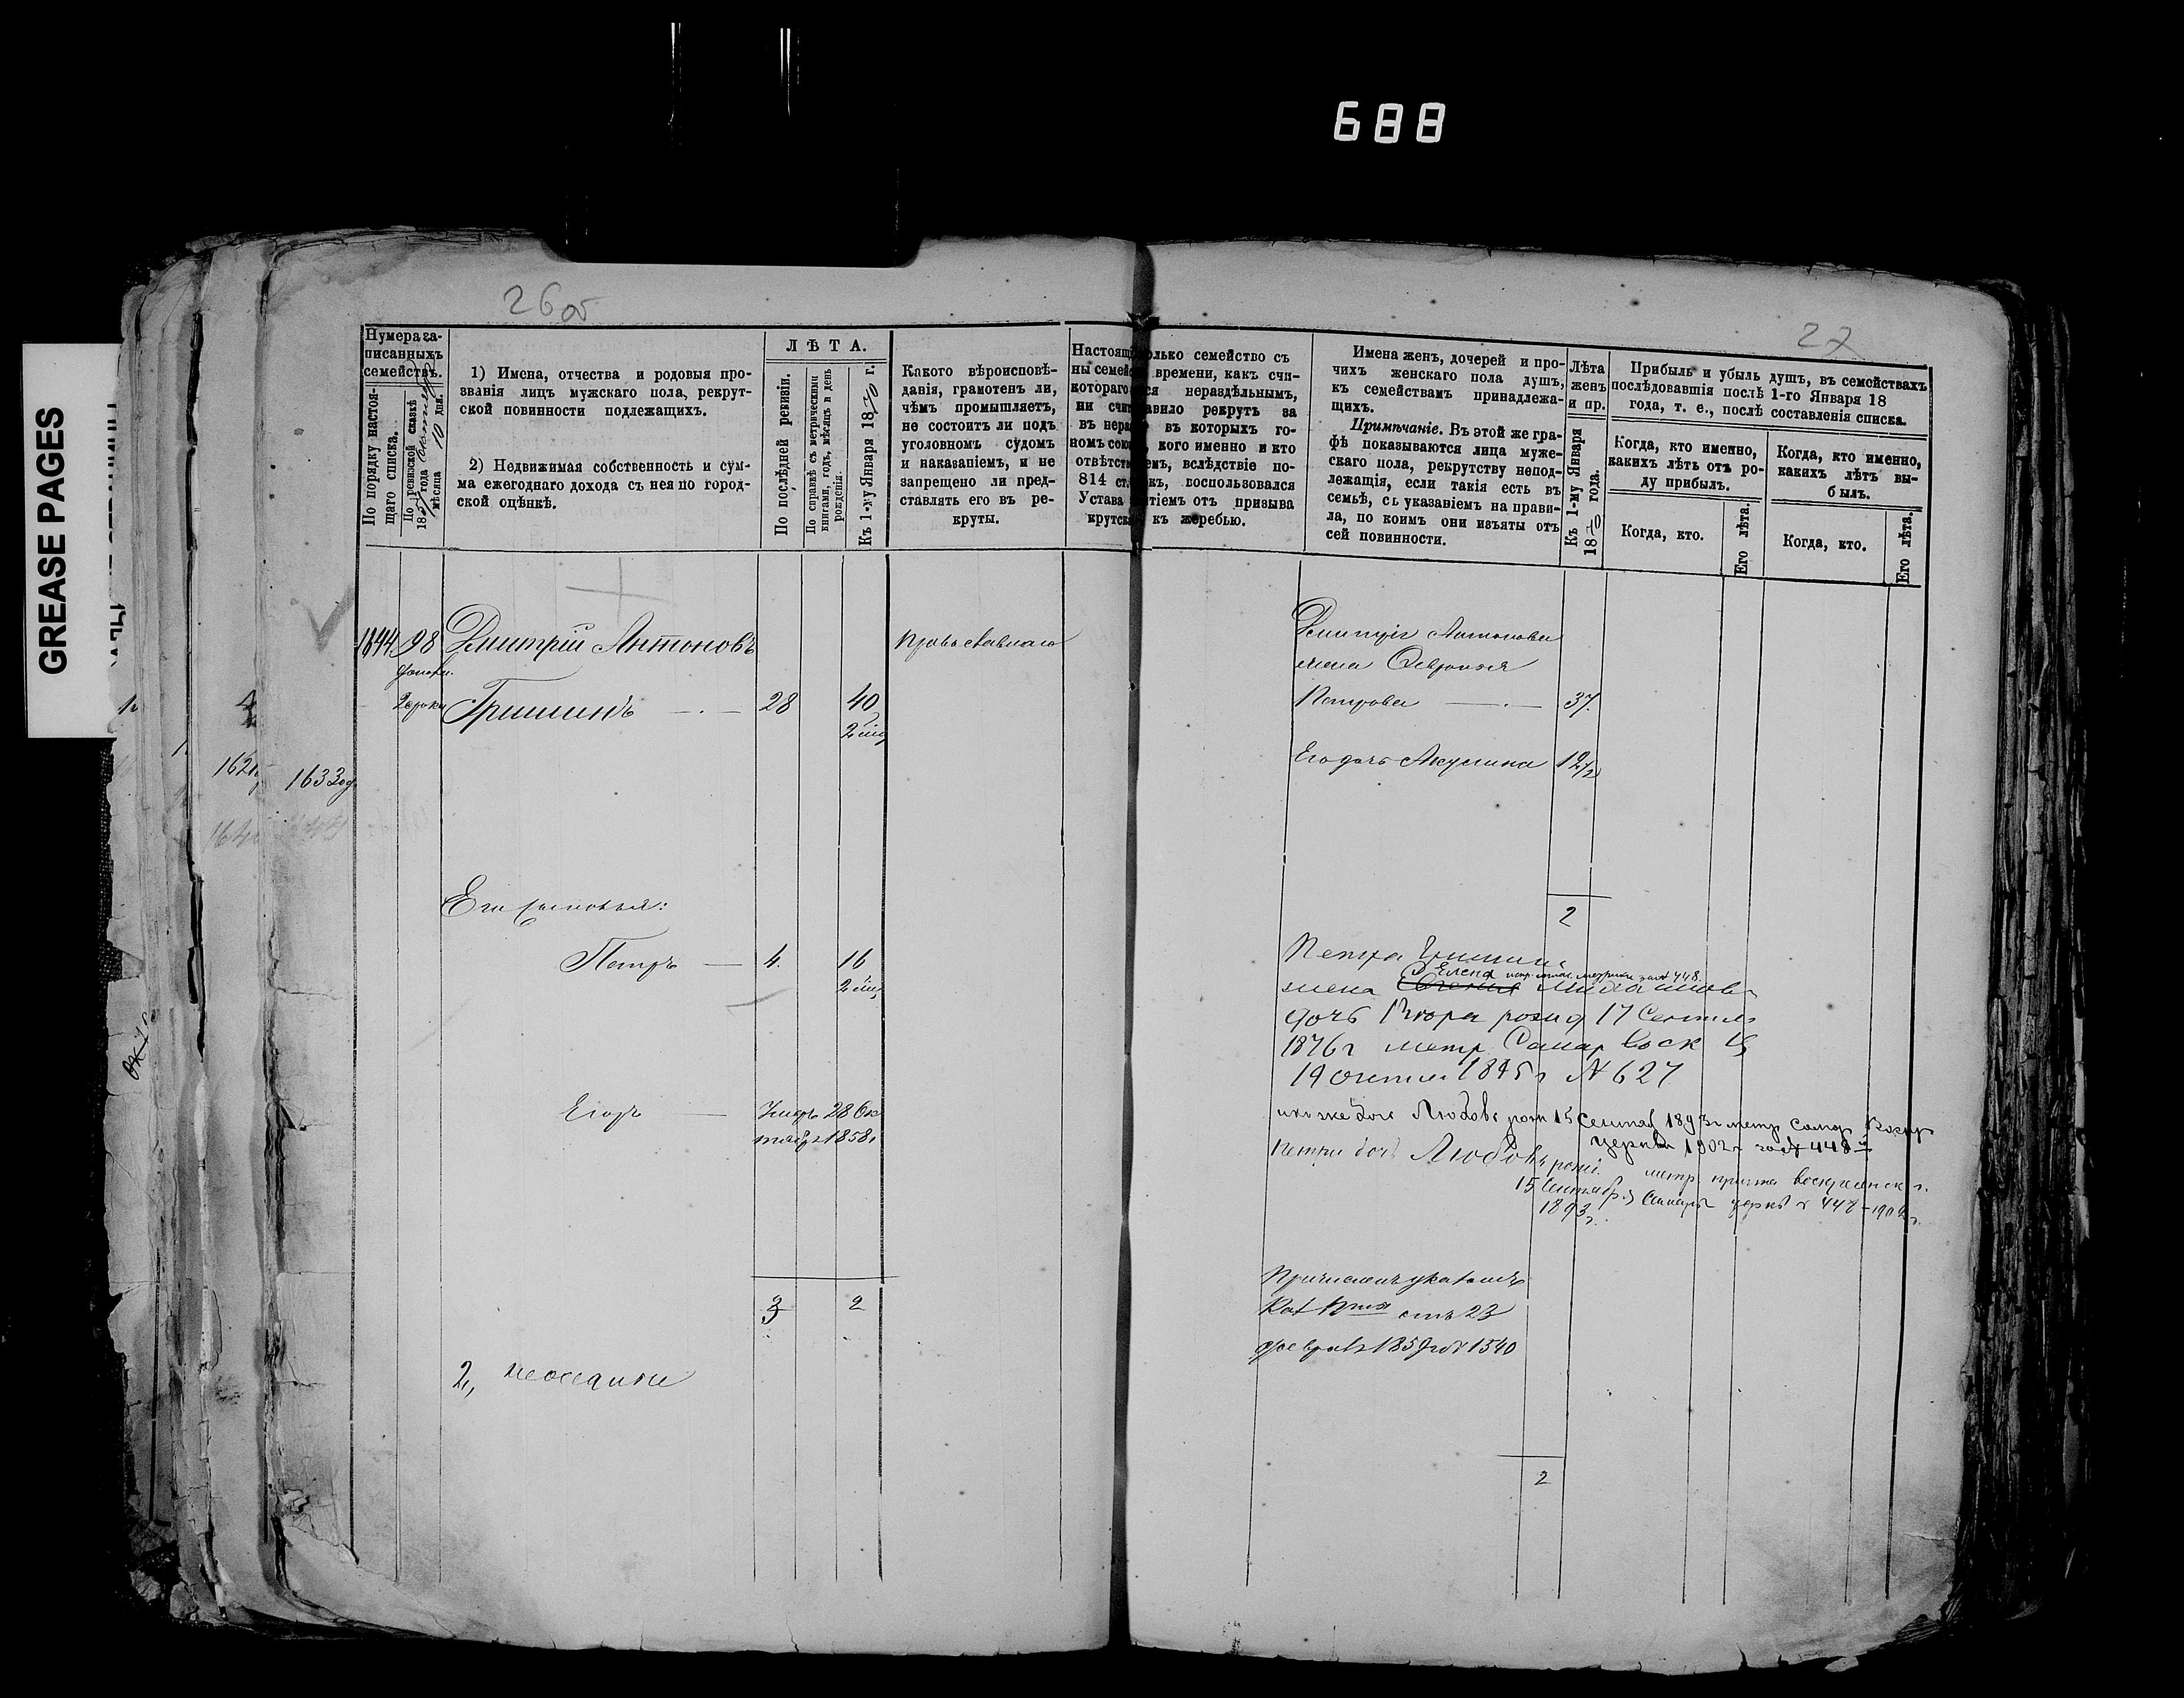 688
GREASE PAGES
26 об
27
Нумера за-
писанныхъ
семействъ.
По порядку настоя-
щаго списка.
По ревизской сказкѣ
18 года
мѣсяца 10 дня.
1) Имена, отчества и родовыя про-
званія лицъ мужскаго пола, рекрут-
ской повинности подлежащихъ.
2) Недвижимая собственность и сум-
ма ежегоднаго дохода съ нея по город-
ской оцѣнкѣ.
ЛѢТА.
По послѣдней ревизіи.
По справкѣ съ метрическими
книгами, годъ, мѣсяцъ и день
рожденія.
Къ 1-му Января 1870 г.
Какого вѣроисповѣ-
данія, грамотенъ ли,
чѣмъ промышляетъ,
не состоитъ ли подъ
уголовномъ судомъ
и наказаніемъ, и не
запрещено ли пред-
ставлять его въ ре-
круты.
Настоящ олько семейство съ
ны семей времени, какъ счи-
котораго ся нераздѣльнымъ,
ни счит авило рекрутъ за
въ нера въ которыхъ го-
номъ сою кого именно и кто
отвѣтств емъ, вслѣдствіе по-
814 ст. къ, воспользовался
Устава тіемъ отъ призыва
крутск къ жеребью.
Имена женъ, дочерей и про-
чихъ женскаго пола душъ,
къ семействамъ принадлежа-
щихъ.
Примѣчаніе. Въ этой же гра-
фѣ показываются лица муже-
скаго пола, рекрутству непод-
лежащія, если такія есть въ
семьѣ, съ указаніемъ на прави-
ла, по коимъ они изъяты отъ
сей повинности.
Лѣта
женъ
и пр.
Къ 1-му Января
1870 года.
Прибыль и убыль душъ, въ семействахъ
послѣдовавшія послѣ 1-го Января 18
года, т. е., послѣ составленія списка.
Когда, кто именно,
какихъ лѣтъ отъ ро-
ду прибылъ.
Когда, кто именно,
какихъ лѣтъ вы-
былъ.
Когда, кто.
Его лѣта.
Когда, кто.
Его лѣта.
98 Дмитрій Антоновъ
Православнаго
Дмитрія Антонова
жена
Гришинъ 28 40
Петрова 37
Его дочь Акулина 12 1/2
1633
Его сыновья:
2
Петръ 4. 16
Петра Гришина
Елена
жена
дочь рожд 17
1876 г метр Самар Воск
1895 г № 627
Егоръ
1858
дочь Любовь рож 15 Сентяб 1893 г метр Самар
церкви 1902 г 448
Петра доч Любовь
15 Сентября
1893 г.
3 2
отъ 23
1859 год № 1540
2,
2